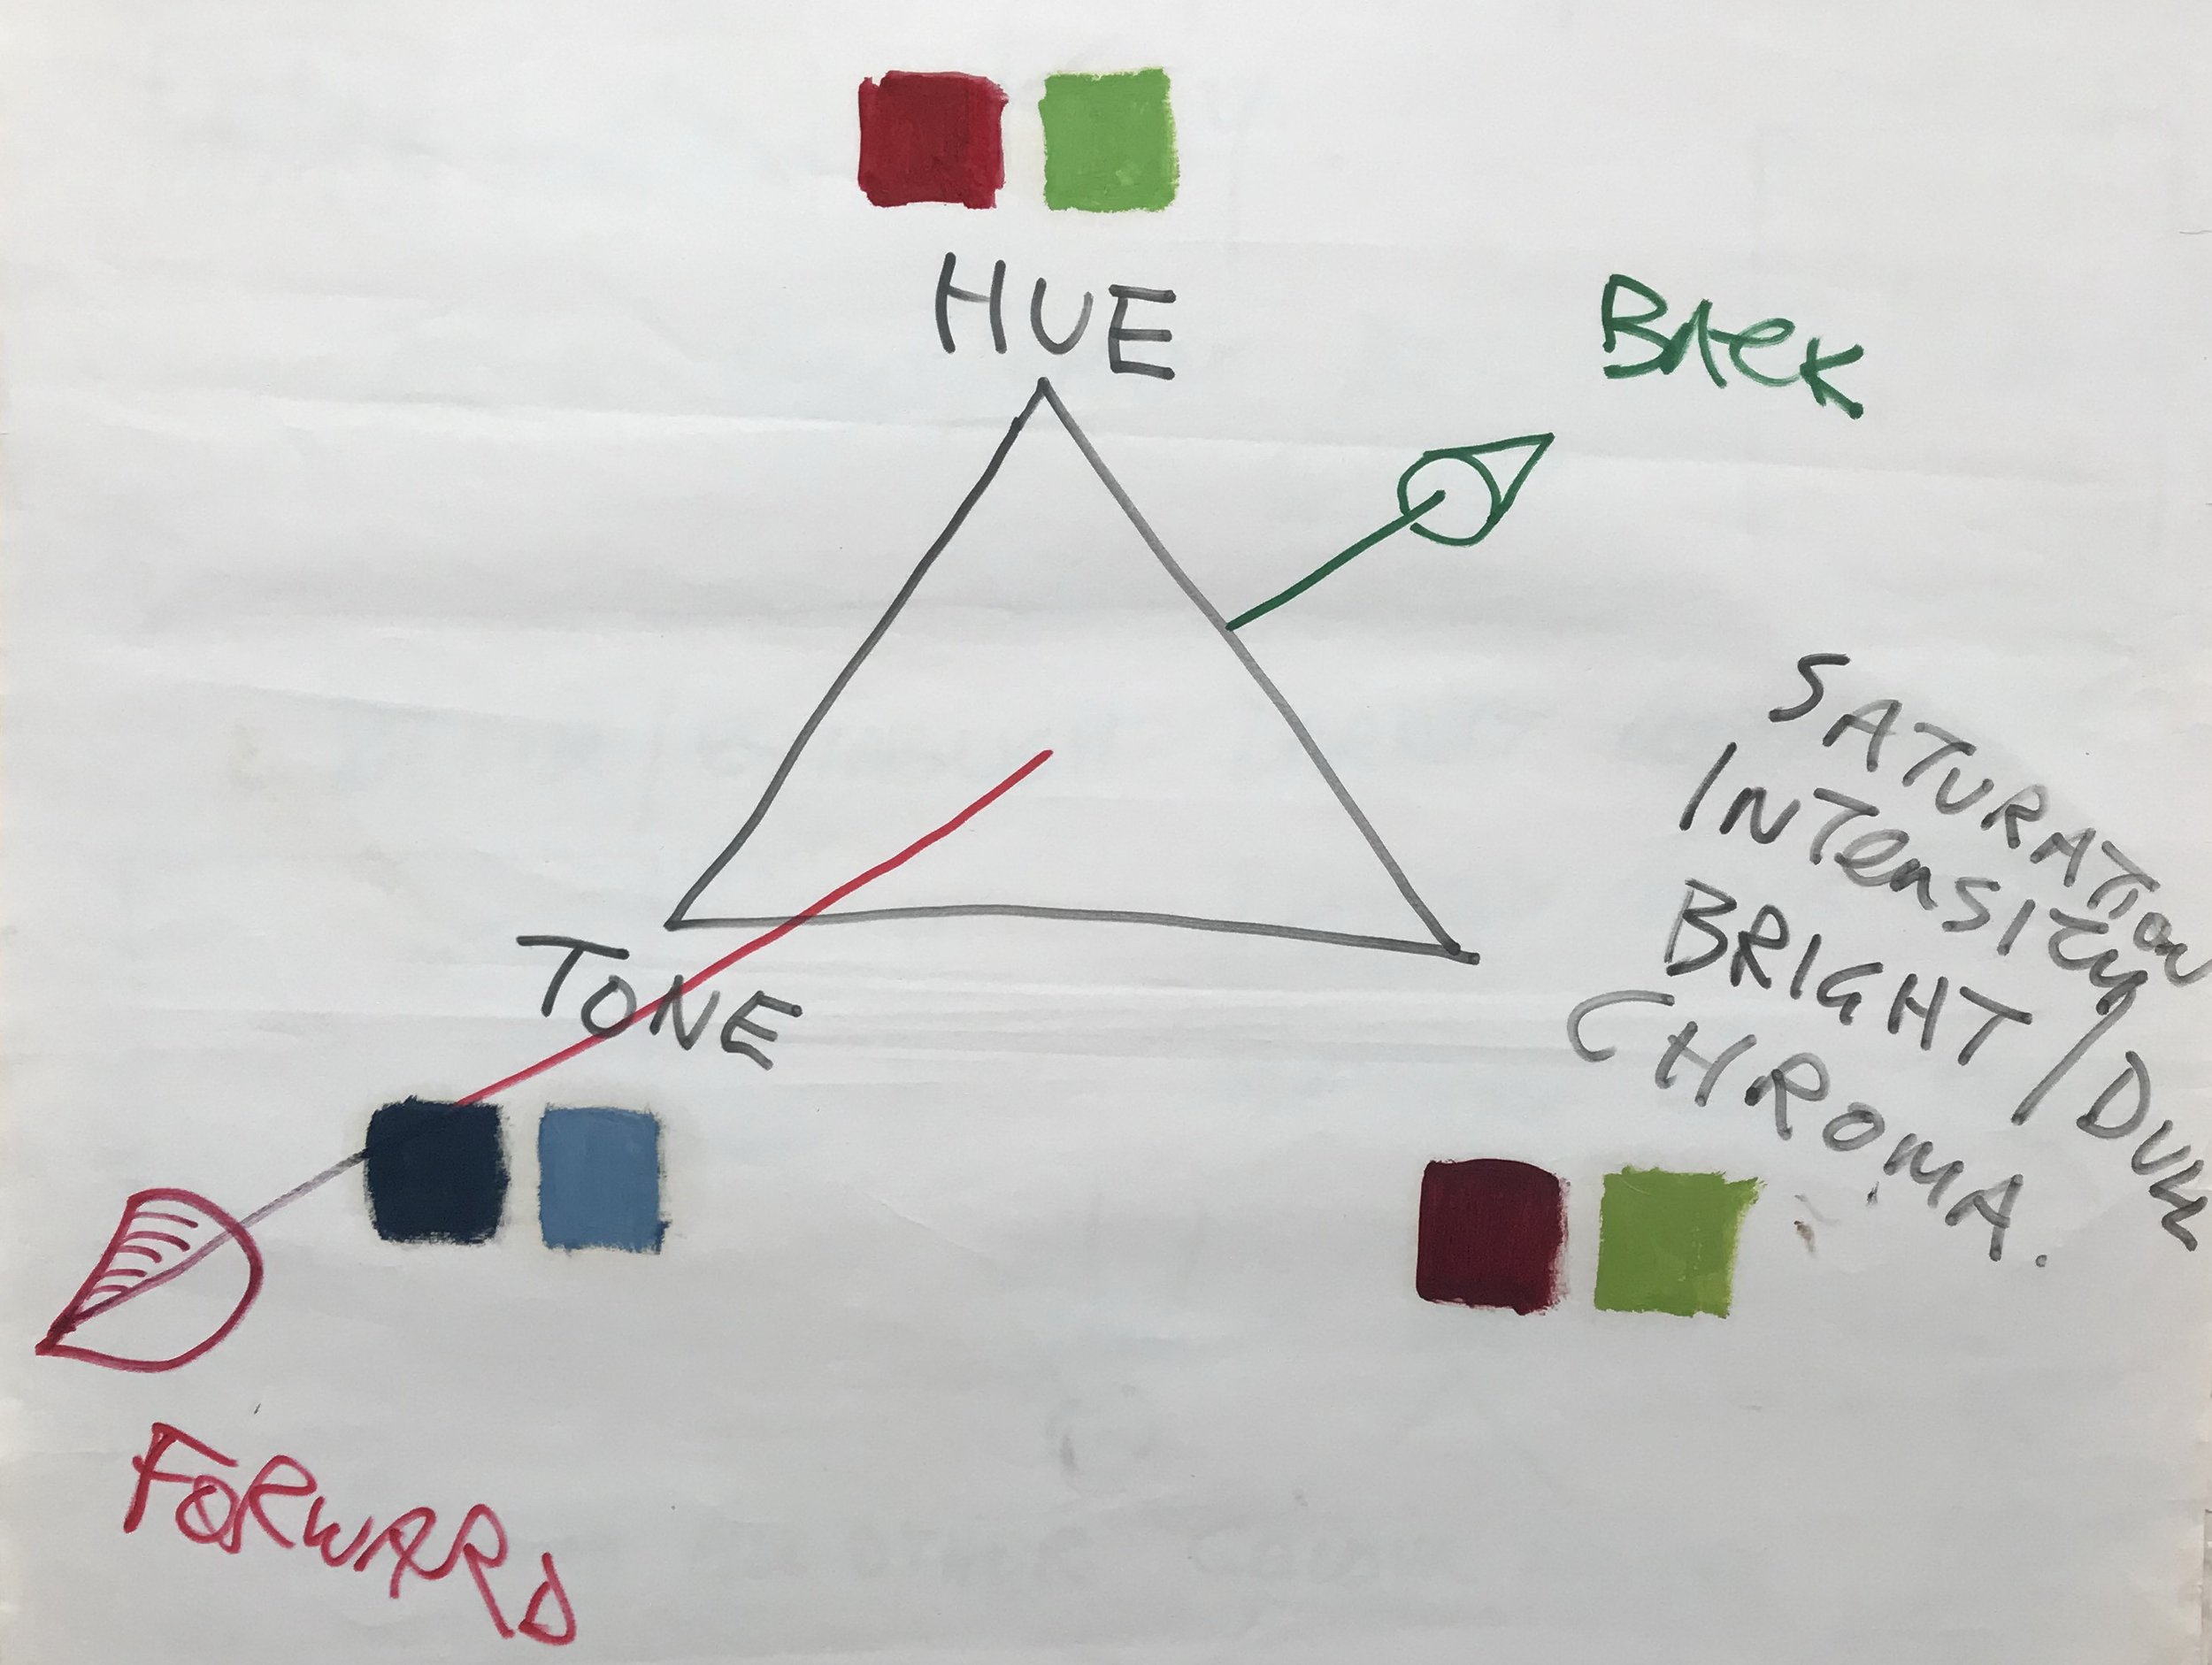 HUE
BACK
SATURATION
INTENSITY
BRIGHT/DULL
CHROMA.
TONE
FORWARD